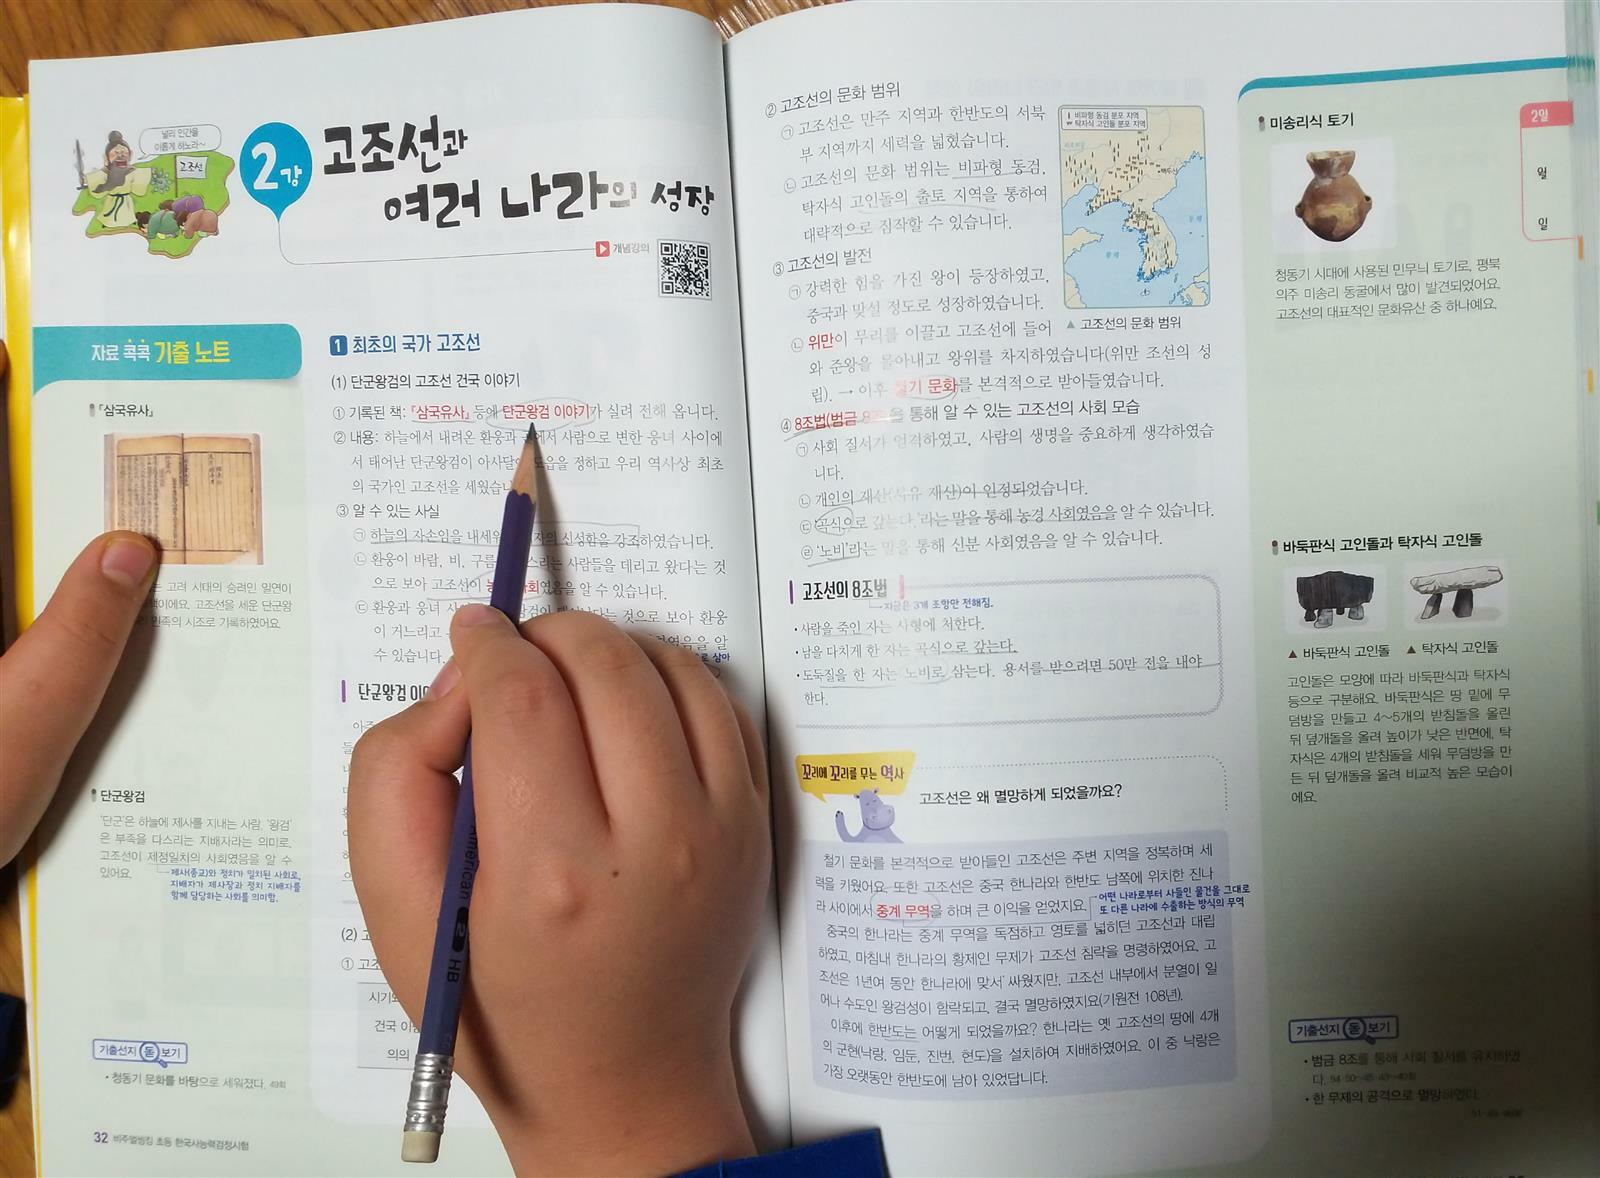 널리 인간을
이롭게 하노라~
고조선
2강
고조선과
여러 나라의 성장
개념강의
자료 콕콕 기출 노트
『삼국유사』
는 고려 시대의 승려인 일연이
책이에요. 고조선을 세운 단군왕
민족의 시조로 기록하였어요.
단군왕검
'단군'은 하늘에 제사를 지내는 사람, '왕검'
은 부족을 다스리는 지배자라는 의미로,
고조선이 제정일치의 사회였음을 알 수
있어요.
제사(종교)와 정치가 일치된 사회로,
지배자가 제사장과 정치 지배자를
함께 담당하는 사회를 의미함.
기출선지 돋보기
• 청동기 문화를 바탕으로 세워졌다. 49회
32 비주얼씽킹 초등 한국사능력검정시험
1 최초의 국가 고조선
(1) 단군왕검의 고조선 건국 이야기
① 기록된 책: 『삼국유사』 등에 단군왕검 이야기가 실려 전해 옵니다.
② 내용: 하늘에서 내려온 환웅과 곰에서 사람으로 변한 웅녀 사이에
서 태어난 단군왕검이 아사달에 도읍을 정하고 우리 역사상 최초
의 국가인 고조선을 세웠습니
③ 알 수 있는 사실
㉠ 하늘의 자손임을 내세워 자의 신성함을 강조하였습니다.
㉡ 환웅이 바람, 비, 구름 스리는 사람들을 데리고 왔다는 것
으로 보아 고조선이 농 사회였음을 알 수 있습니다.
㉢ 환웅과 웅녀 사 검이 태어났다는 것으로 보아 환웅
이 거느리고 였음을 알
수 있습니다.
로 삼아
단군왕검 이야
아주
(2) 고
① 고조
시기
건국 이
의의
② 고조선의 문화 범위
㉠ 고조선은 만주 지역과 한반도의 서북
부 지역까지 세력을 넓혔습니다.
㉡ 고조선의 문화 범위는 비파형 동검,
탁자식 고인돌의 출토 지역을 통하여
대략적으로 짐작할 수 있습니다.
③ 고조선의 발전
㉠ 강력한 힘을 가진 왕이 등장하였고,
중국과 맞설 정도로 성장하였습니다.
㉡ 위만이 무리를 이끌고 고조선에 들어
와 준왕을 몰아내고 왕위를 차지하였습니다(위만 조선의 성
립). → 이후 철기 문화를 본격적으로 받아들였습니다.
비파형 동검 분포 지역
탁자식 고인돌 분포 지역
▲ 고조선의 문화 범위
④ 8조법(범금 8조)을 통해 알 수 있는 고조선의 사회 모습
㉠ 사회 질서가 엄격하였고, 사람의 생명을 중요하게 생각하였습
니다.
㉡ 개인의 재산(사유 재산)이 인정되었습니다.
㉢ '곡식으로 갚는다.'라는 말을 통해 농경 사회였음을 알 수 있습니다.
㉣ '노비'라는 말을 통해 신분 사회였음을 알 수 있습니다.
고조선의 8조법
지금은 3개 조항만 전해짐.
• 사람을 죽인 자는 사형에 처한다.
• 남을 다치게 한 자는 곡식으로 갚는다.
• 도둑질을 한 자는 노비로 삼는다. 용서를 받으려면 50만 전을 내야
한다.
꼬리에 꼬리를 무는 역사
고조선은 왜 멸망하게 되었을까요?
철기 문화를 본격적으로 받아들인 고조선은 주변 지역을 정복하며 세
력을 키웠어요. 또한 고조선은 중국 한나라와 한반도 남쪽에 위치한 진나
라 사이에서 중계 무역을 하며 큰 이익을 얻었지요.
어떤 나라로부터 사들인 물건을 그대로
또 다른 나라에 수출하는 방식의 무역
중국의 한나라는 중계 무역을 독점하고 영토를 넓히던 고조선과 대립
하였고, 마침내 한나라의 황제인 무제가 고조선 침략을 명령하였어요. 고
조선은 1년여 동안 한나라에 맞서 싸웠지만, 고조선 내부에서 분열이 일
어나 수도인 왕검성이 함락되고, 결국 멸망하였지요(기원전 108년).
이후에 한반도는 어떻게 되었을까요? 한나라는 옛 고조선의 땅에 4개
의 군현(낙랑, 임둔, 진번, 현도)을 설치하여 지배하였어요. 이 중 낙랑은
가장 오랫동안 한반도에 남아 있었답니다.
2일
월
일
미송리식 토기
청동기 시대에 사용된 민무늬 토기로, 평북
의주 미송리 동굴에서 많이 발견되었어요.
고조선의 대표적인 문화유산 중 하나예요.
바둑판식 고인돌과 탁자식 고인돌
▲ 바둑판식 고인돌 ▲ 탁자식 고인돌
고인돌은 모양에 따라 바둑판식과 탁자식
등으로 구분해요. 바둑판식은 땅 밑에 무
덤방을 만들고 4~5개의 받침돌을 올린
뒤 덮개돌을 올려 높이가 낮은 반면에, 탁
자식은 4개의 받침돌을 세워 무덤방을 만
든 뒤 덮개돌을 올려 비교적 높은 모습이
에요.
기출선지 돋보기
• 범금 8조를 통해 사회 질서를 유지하였
다.
• 한 무제의 공격으로 멸망하였다.